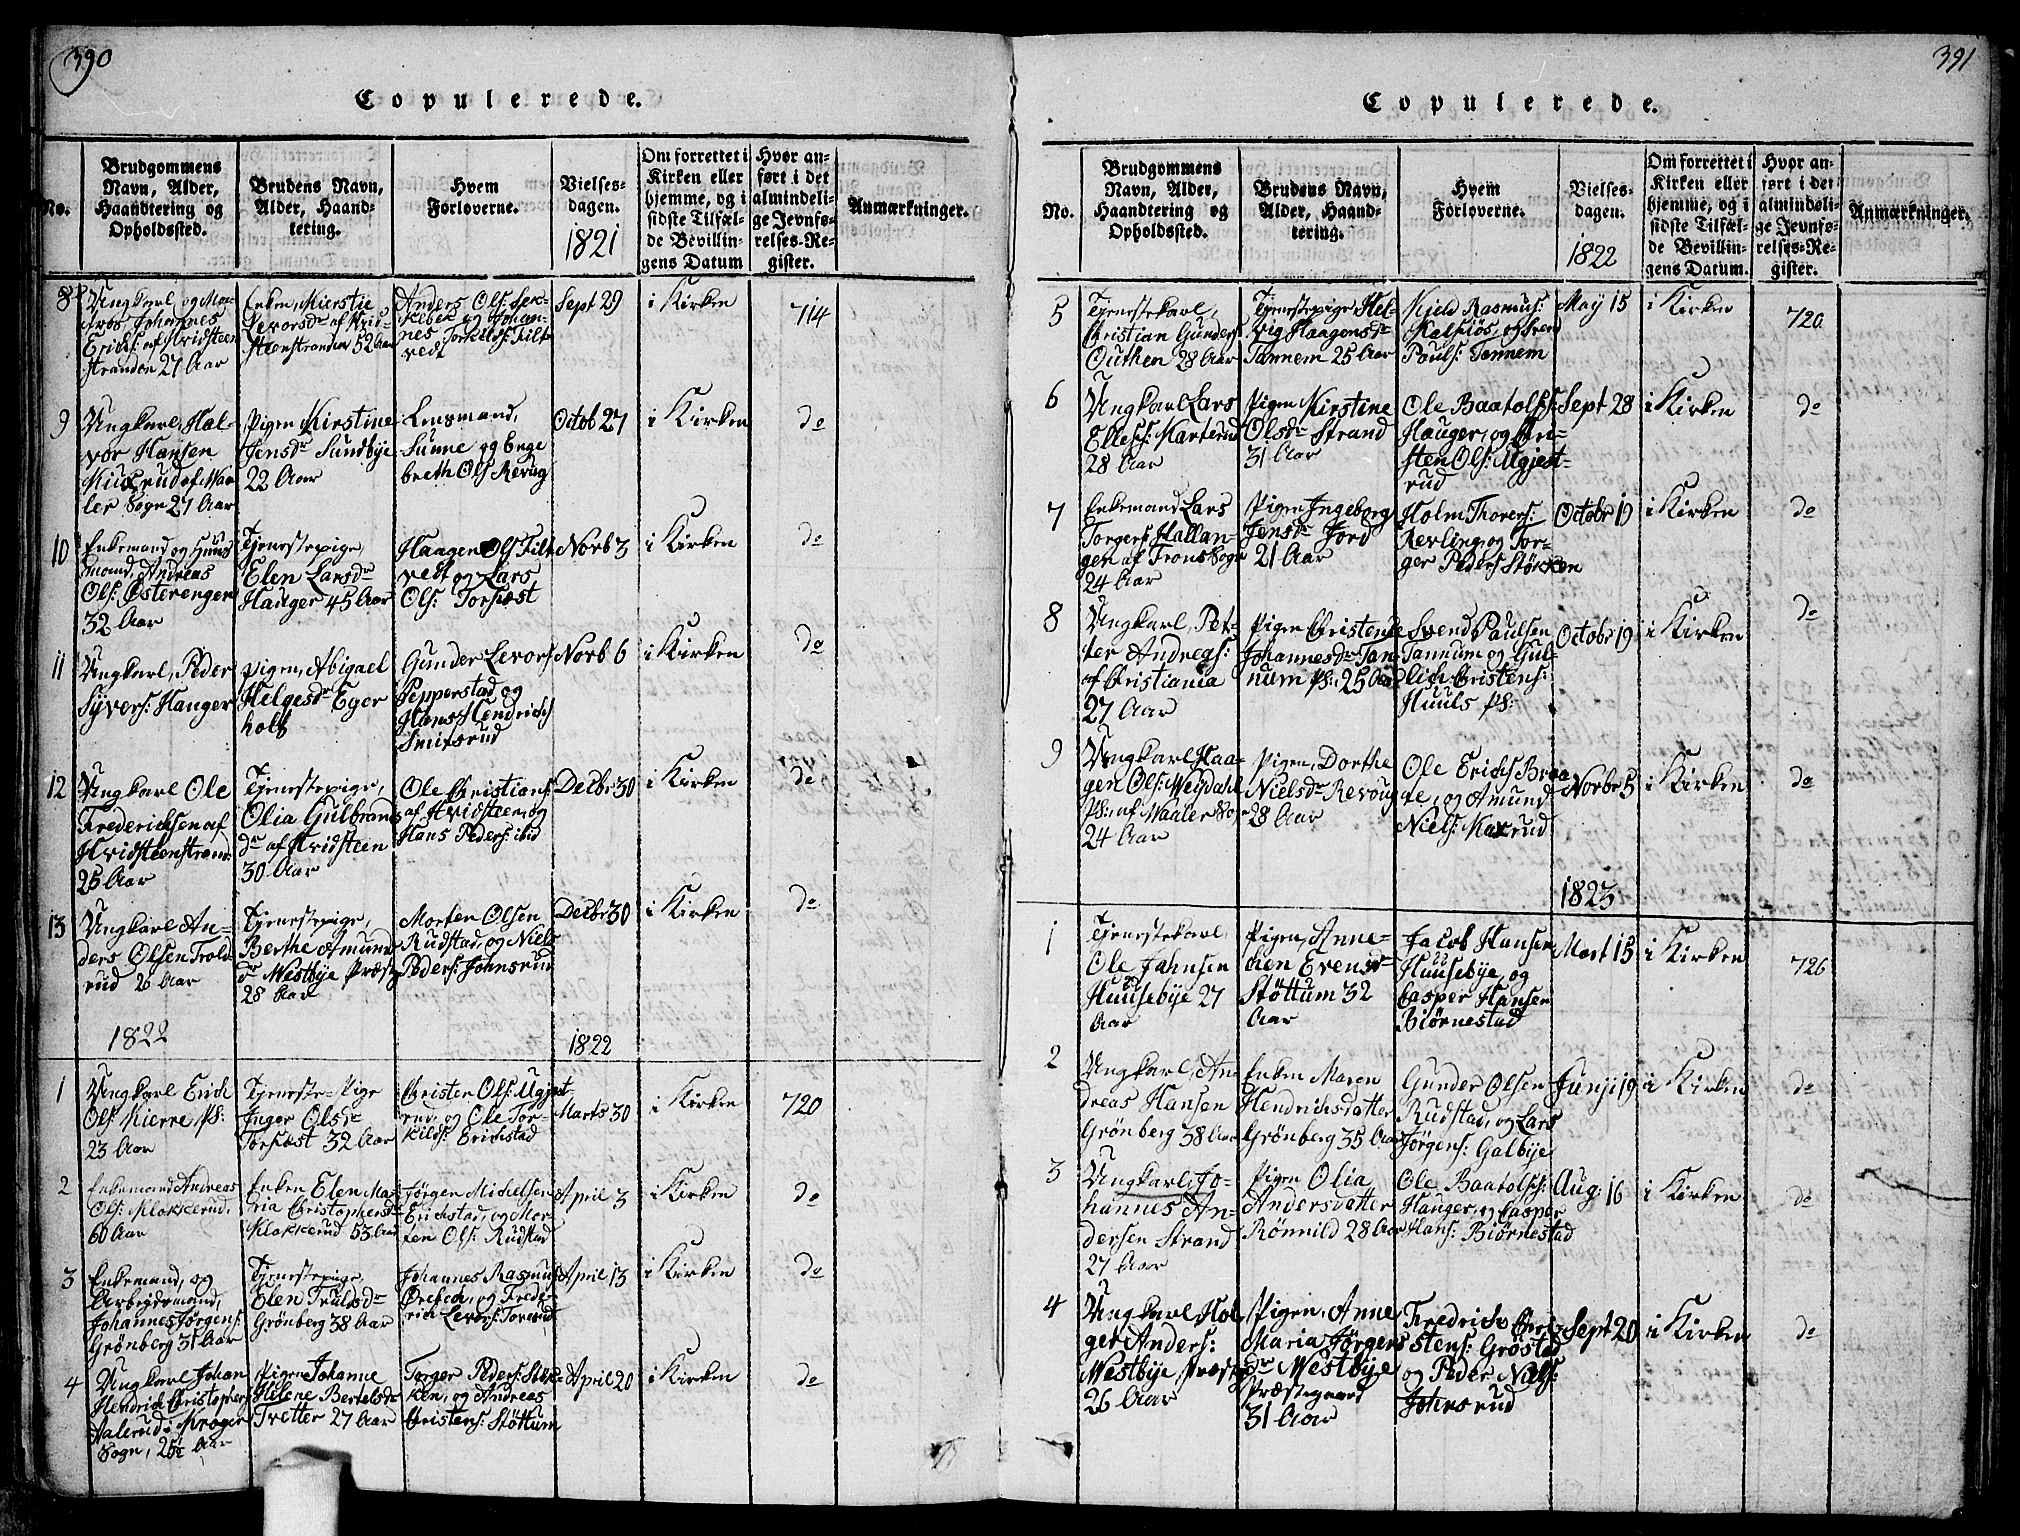 390
Copulerede.
No.
Brudgommens
Navn, Alder,
Haandtering og
Opholdssted.
Brudens Navn,
Alder, Haand-
tering.
Hvem
Forloverne.
Vielses-
dagen.
1821
Om forrettet i
Kirken eller
hjemme, og i
sidste Tilfæl-
de Bevillin-
gens Datum
Hvor an-
ført i det
almindeli-
ge Jevnfø-
relses-Re-
gister.
Anmærkninger.
8
Ungkarl, og Ma-
tros Johannes
Erichs: af Hvidsteen
stranden 27 Aar
Enken, Kierstie
Levorsdr af Hvid-
steenstranden 52 Aar
Anders Ols:
og Johan-
nes Torkilds: Filt-
vedt
Sept 29
i Kirken
714
9
Ungkarl, Hal-
vor Hansen
af Waa-
ler Sogn 27 Aar
Pigen Kirstine
Jensdr Sundbye
22 Aar
Lensmand,
Sunne og Enge
breth Ols: Revug
Octob 27
i Kirken
do
10
Enkemand og Huus
mand, Andreas
Ols: Østerengen
32 Aar
Tjenestepige,
Elen Larsdr
Hauger 45 Aar
Haagen Ols: Filt
vedt og Lars
Ols: Torfæst
Novb 3
i Kirken
do
11
Ungkarl, Peder
Syvers: Hauger
Pigen, Abigael
Helgesdr Eger
holt
Gunder Levors:
Pepperstad og
Hans Hendrichs
Smitsrud
Novb 6
i Kirken
do
12
Ungkarl Ole
Frederichsen af
Hvidsteenstrand
25 Aar
Tjenestepige,
Olia Gulbrands
dr af Hvidsteen
30 Aar
Ole Christians:
af Hvidsteen, og
Hans Peders: ibid
Decbr 30
i Kirken
do
13
Ungkarl An-
ders Olsen Trold
rud 26 Aar
Tjenestepige,
Berthe Amund
dr Westbye Præstg
28 Aar
Morten Olsen
Rudstad, og Niels
Peders: Johnsrud
Decbr 30
i Kirken
do
1822
1822
1
Ungkarl Erich
Ols: Kierre Ps:
23 Aar
Tjeneste-Pige
Inger Olsdr
Torfæst 32 Aar
Christen Ols: Mgjest-
rud, og Ole Tor-
kilds: Erichstad
Marts 30
i Kirken
720
2
Enkemand Andreas
Ols: Klokkerud,
60 Aar
Enken Elen Ma-
ria Christophersdr
Klokkerud 53 Aar
Jørgen Michelsen
Erichstad, og Mor-
ten Ols: Rudstad
April 3
i Kirken
do
3
Enkemand, og
Arbeidsmand,
Johannes Jørgens:
Grønberg 31 Aar
Tjenestepige,
Elen Trulsdr
Grønberg 38 Aar
Johannes Rasmus:
og Frede-
rich Levors: Torsrud
April 13
i Kirken
do
4
Ungkarl Johan
Hendrich Christophers:
Aalerud i Kroger
Sogn, 25½ Aar
Pigen Johanne
Helene Bertelsdr
Tvetter 27 Aar
Torger Peders: Støk-
ken, og Andreas
Christens: Støttum
April 20
i Kirken
do
391
Copulerede.
No.
Brudgommens
Navn, Alder,
Haandtering og
Opholdssted.
Brudens Navn,
Alder, Haand-
tering.
Hvem
Forloverne.
Vielses-
dagen.
1822
Om forrettet i
Kirken eller
hjemme, og i
sidste Tilfæl-
de Bevillin-
gens Datum.
Hvor an-
ført i det
almindeli-
ge Jevnfø-
relses-Re-
gister.
Anmærkninger.
5
Tjenestekarl,
Christian Gunders:
Outhen 28 Aar
Tjenestepige Hel-
vig Haagensdr
Tannem 25 Aar
Kield Rasmus:
Kalsiøs, og Svend
Pouls: Tannem
May 15
i Kirken
720
6
Ungkarl Lars
Ellefs: Marterud
28 Aar
Pigen Kirstine
Olsdr Strand
31 Aar
Ole Baatolfs:
Hauger, og Chri-
sten Ols: Mgjest-
rud
Sept 28
i Kirken
do
7
Enkemand Lars
Torgers: Hallan-
gen af Frons Sogn
24 Aar
Pigen, Ingeborg
Jensdr Jord
21 Aar
Holm Thorers:
Revling, og Tor-
ger Peders: Støkken
Octobr 19
i Kirken
do
8
Ungkarl, Pet-
ter Andreas:
af Christiania
27 Aar
Pigen Christense
Johannesdr Tan-
num Ps: 25 Aar
Svend Paulsen
Tannum og Gul-
lich Christens:
Huuls Ps:
Octobr 19
i Kirken
do
9
Ungkarl, Haa-
gen Ols: Weydahl
Ps: af Waaler Sogn
24 Aar
Pigen, Dorthe
Nielsdr Revoug
28 Aar
Ole Erichs: Braa-
te, og Amund
Niels: Maxrud
Novbr 5
i Kirken
do
1823
1
Tjenestekarl
Ole Jahnsen
Huusebye 27
Aar
Pigen, Anne-
chen Evensdr
Støttum 32
Aar
Jacob Hansen
Huusebye, og
Casper Hansen
Biørnestad
Mart 15
i Kirken
726
2
Ungkarl, An-
dreas Hansen
Grønberg 38 Aar
Enken Maren
Hendrichsdatter
Grønberg 35 Aar
Gunder Olsen
Rudstad, og Lars
Jørgens: Galbye
Junji 19
i Kirken
do
3
Ungkarl, Jo-
hannes An-
dersen Strand
27 Aar
Pigen Olia
Andersdatter
Rønnild 28 Aar
Ole Baatolfs:
Hauger, og Casper
Hans: Biørnestad
Aug: 16
i Kirken
do
4
Ungkarl Hol-
ger Anders:
Westbye Præstg
26 Aar
Pigen, Anne
Maria Jørgens
dr Westbye
Præstegaard
31 Aar
Fredrich Chri-
stens: Grøstad
og Peder Niels:
Johnsrud
Sept 20
i Kirken
do